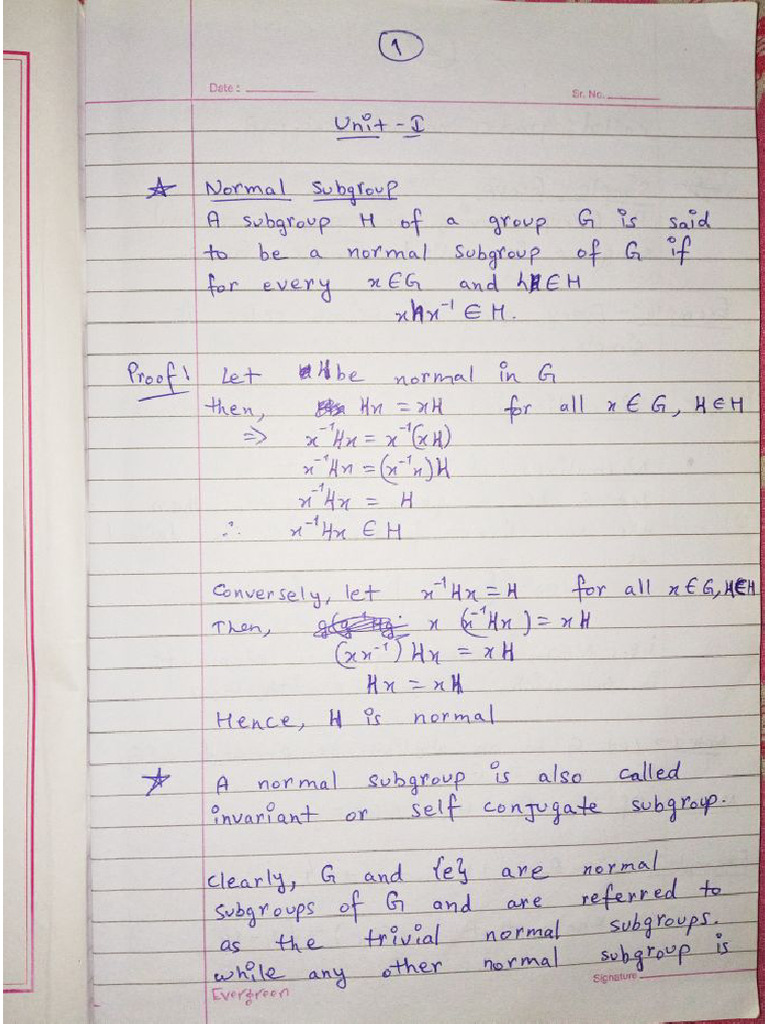 1
Date :
Sr. No.
Unit - I
☆ Normal Subgroup
A subgroup H of a group G is said
to be a normal subgroup of G if
for every x∈G and h∈H
xhx⁻¹ ∈ H.
Proof! Let H be normal in G
then, Hx = xH for all x ∈ G, H∈H
⇒ x⁻¹Hx = x⁻¹(xH)
x⁻¹Hx = (x⁻¹x)H
x⁻¹Hx = H
∴ x⁻¹Hx ∈ H
Conversely, let x⁻¹Hx = H for all x∈G, H∈H
Then, x (x⁻¹Hx) = xH
(xx⁻¹) Hx = xH
Hx = xH
Hence, H is normal
☆ A normal subgroup is also called
invariant or self conjugate subgroup.
Clearly, G and {e} are normal
subgroups of G and are referred to
as the trivial normal subgroups.
while any other normal subgroup is
Evergreen
Signature